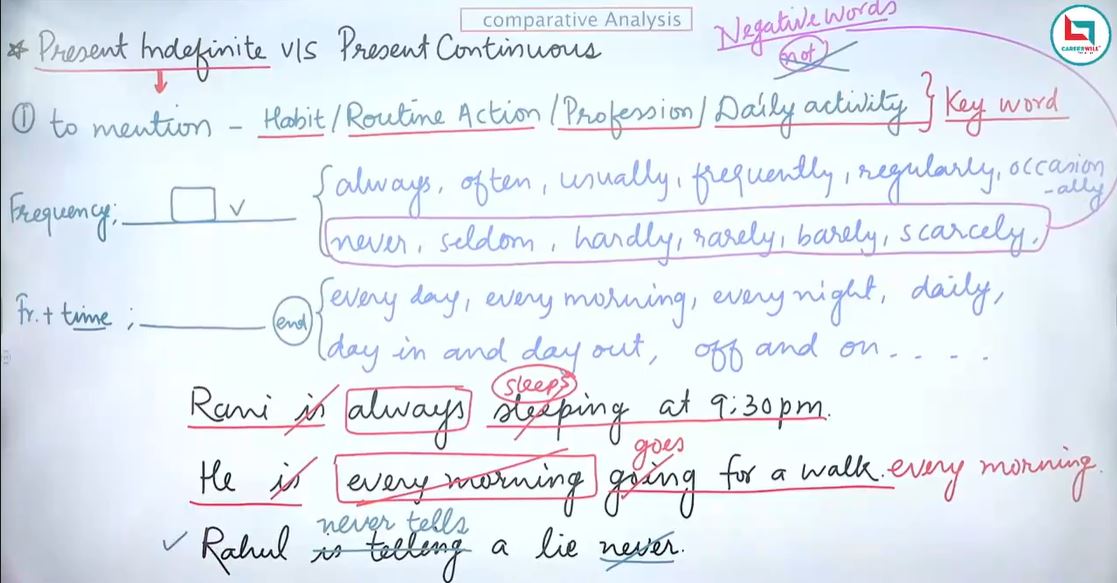 comparative Analysis
Negative words
not
CAREERWILL
* Present Indefinite v/s Present Continuous
① to mention - Habit / Routine Action / Profession / Daily activity } Key word
Frequency; ____ □ ✓ ____ { always, often, usually, frequently, regularly, occasion
-ally
never, seldom, hardly, rarely, barely, scarcely.
Fr. + time ; ________ end { every day, every morning, every night, daily,
day in and day out, off and on.....
sleeps
Rani is always sleeping at 9:30pm.
goes
He is every morning going for a walk. every morning.
never tells
✓ Rahul is telling a lie never.